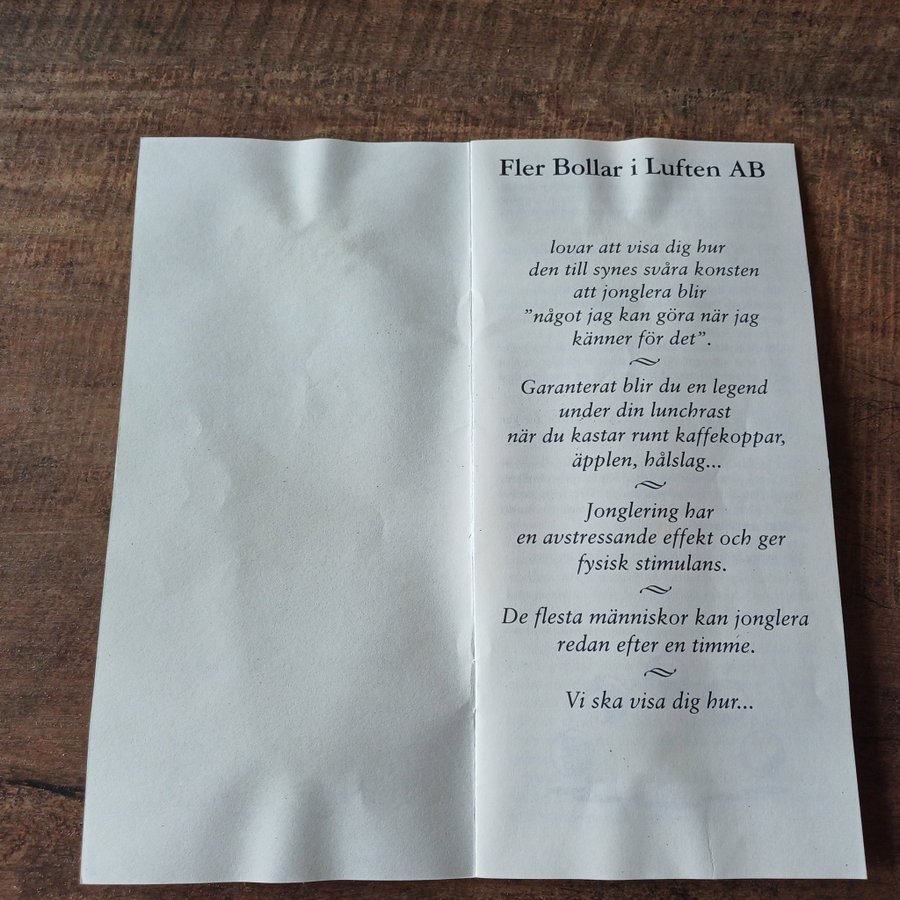 Fler Bollar i Luften AB
lovar att visa dig hur
den till synes svåra konsten
att jonglera blir
”något jag kan göra när jag
känner för det”.
~
Garanterat blir du en legend
under din lunchrast
när du kastar runt kaffekoppar,
äpplen, hålslag...
~
Jonglering har
en avstressande effekt och ger
fysisk stimulans.
~
De flesta människor kan jonglera
redan efter en timme.
~
Vi ska visa dig hur...